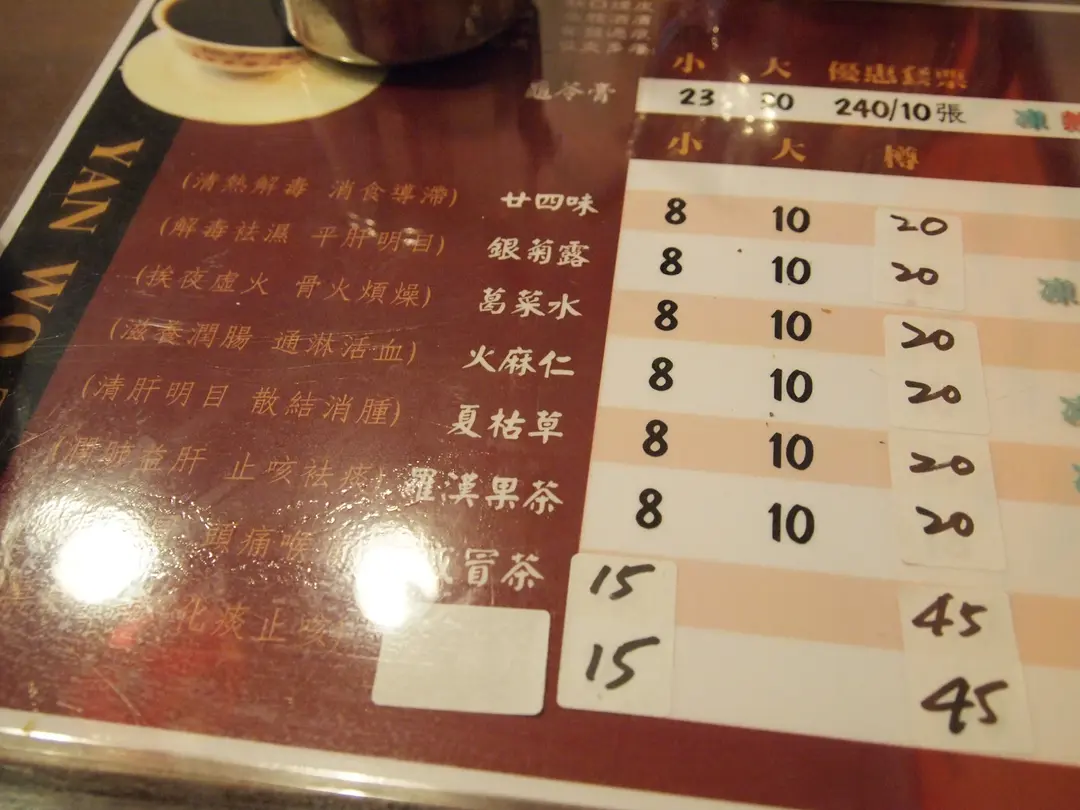 小 大 優惠套票
龜苓膏 23 240/10張 凍
小 大 樽
(清熱解毒 消食導滯) 廿四味 8 10 20
(解毒祛濕 平肝明目) 銀菊露 8 10 20
(挨夜虛火 骨火煩燥) 葛菜水 8 10 20
(滋養潤腸 通淋活血) 火麻仁 8 10 20
(清肝明目 散結消腫) 夏枯草 8 10 20
(潤肺益肝 止咳祛痰) 羅漢果茶 8 10 20
頭痛喉 冒茶 15 45
化痰止咳 15 45
YAN WO